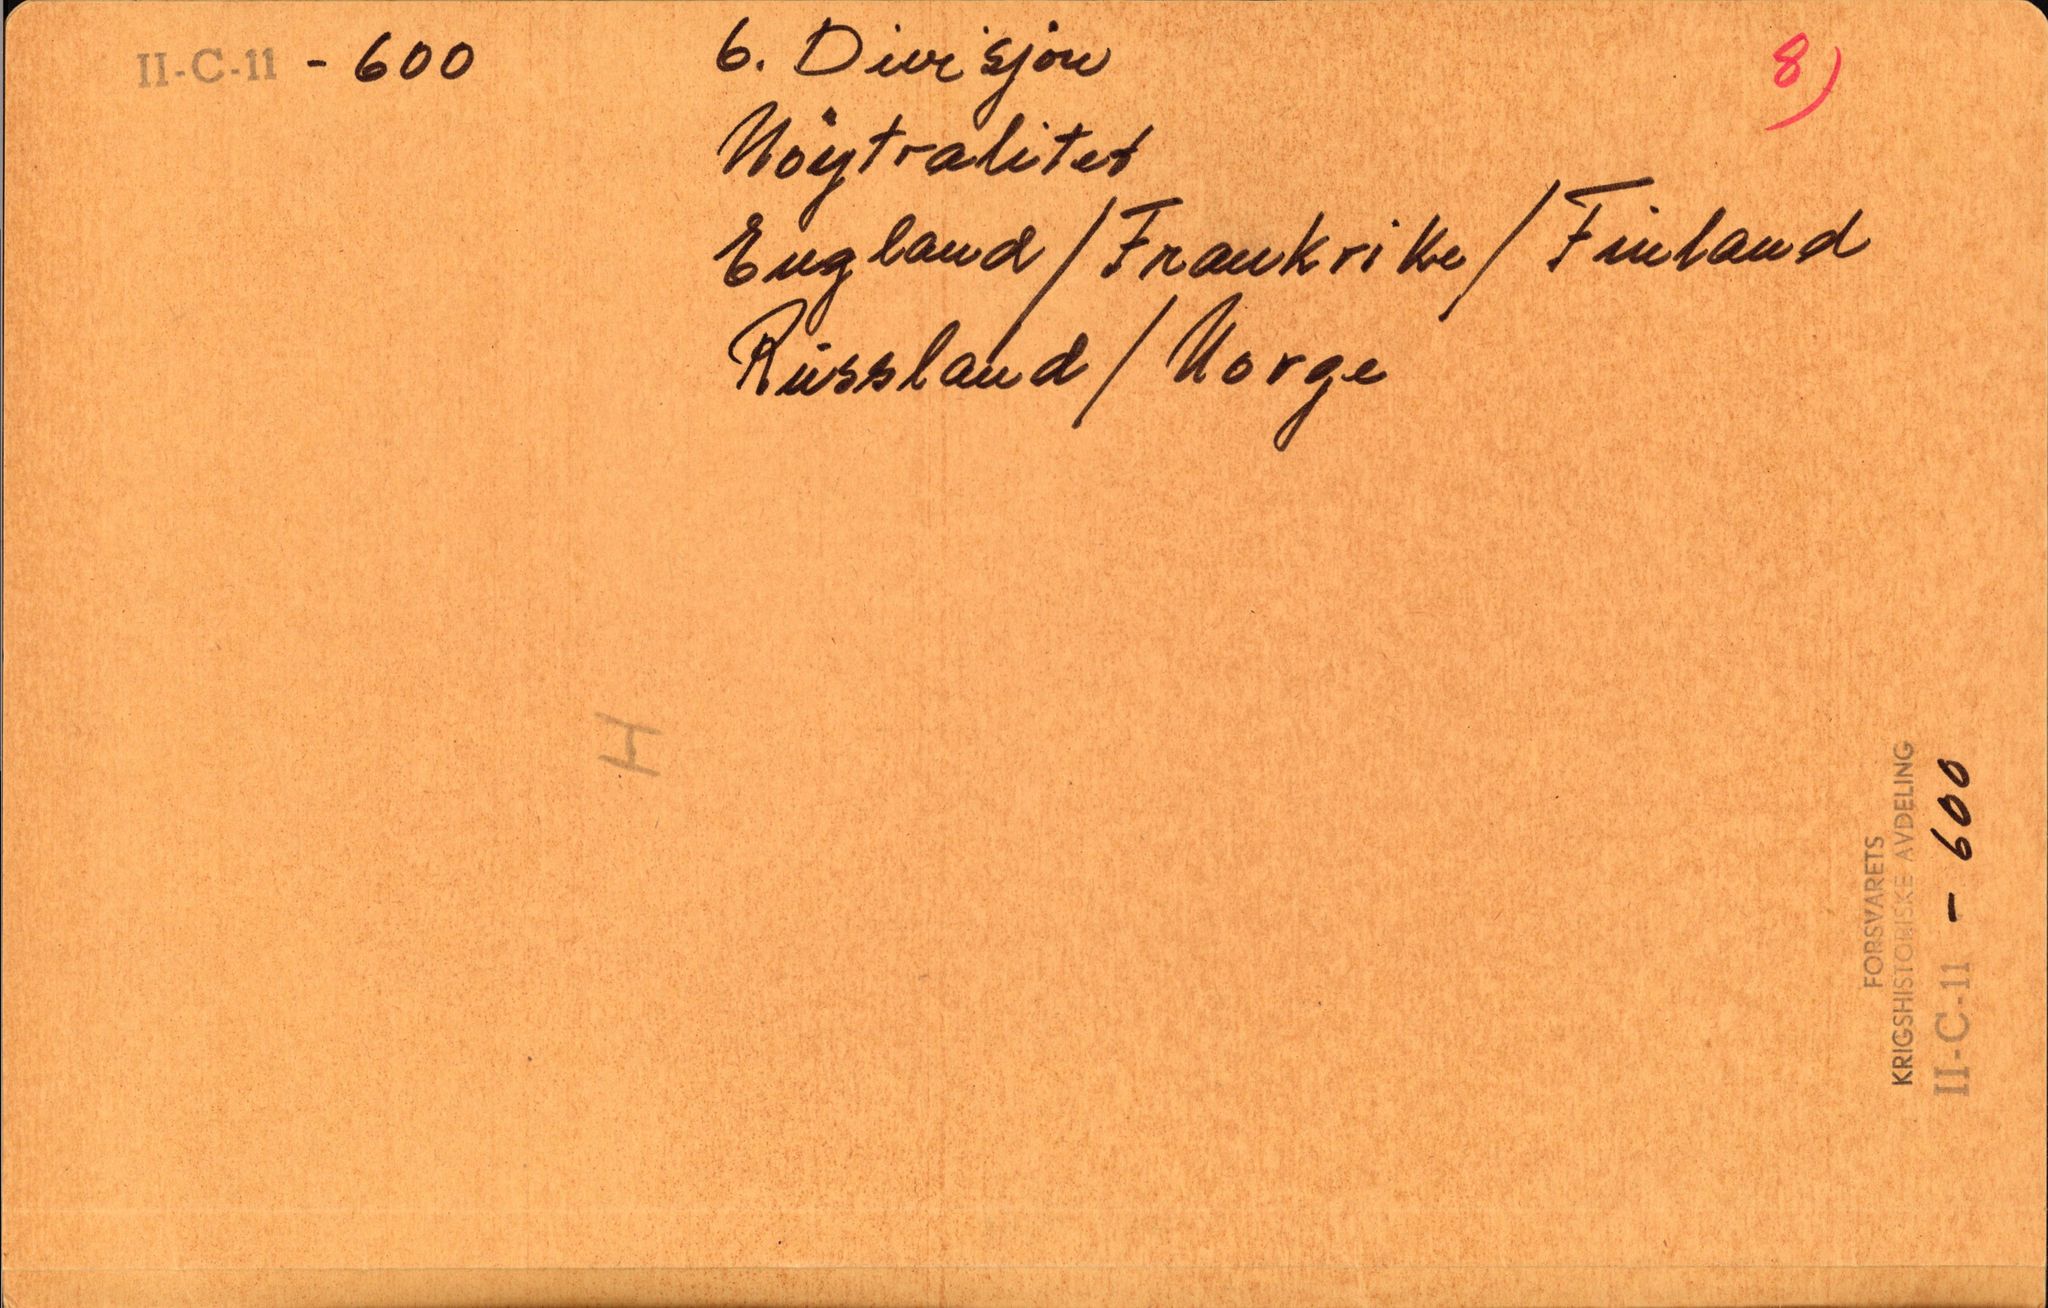 II-C-11 - 600
6. Divisjon
Nöytralitet
England / Frankrike / Finland
Russland / Norge
8)
H
FORSVARETS
KRIGSHISTORISKE AVDELING
II-C-11 - 600